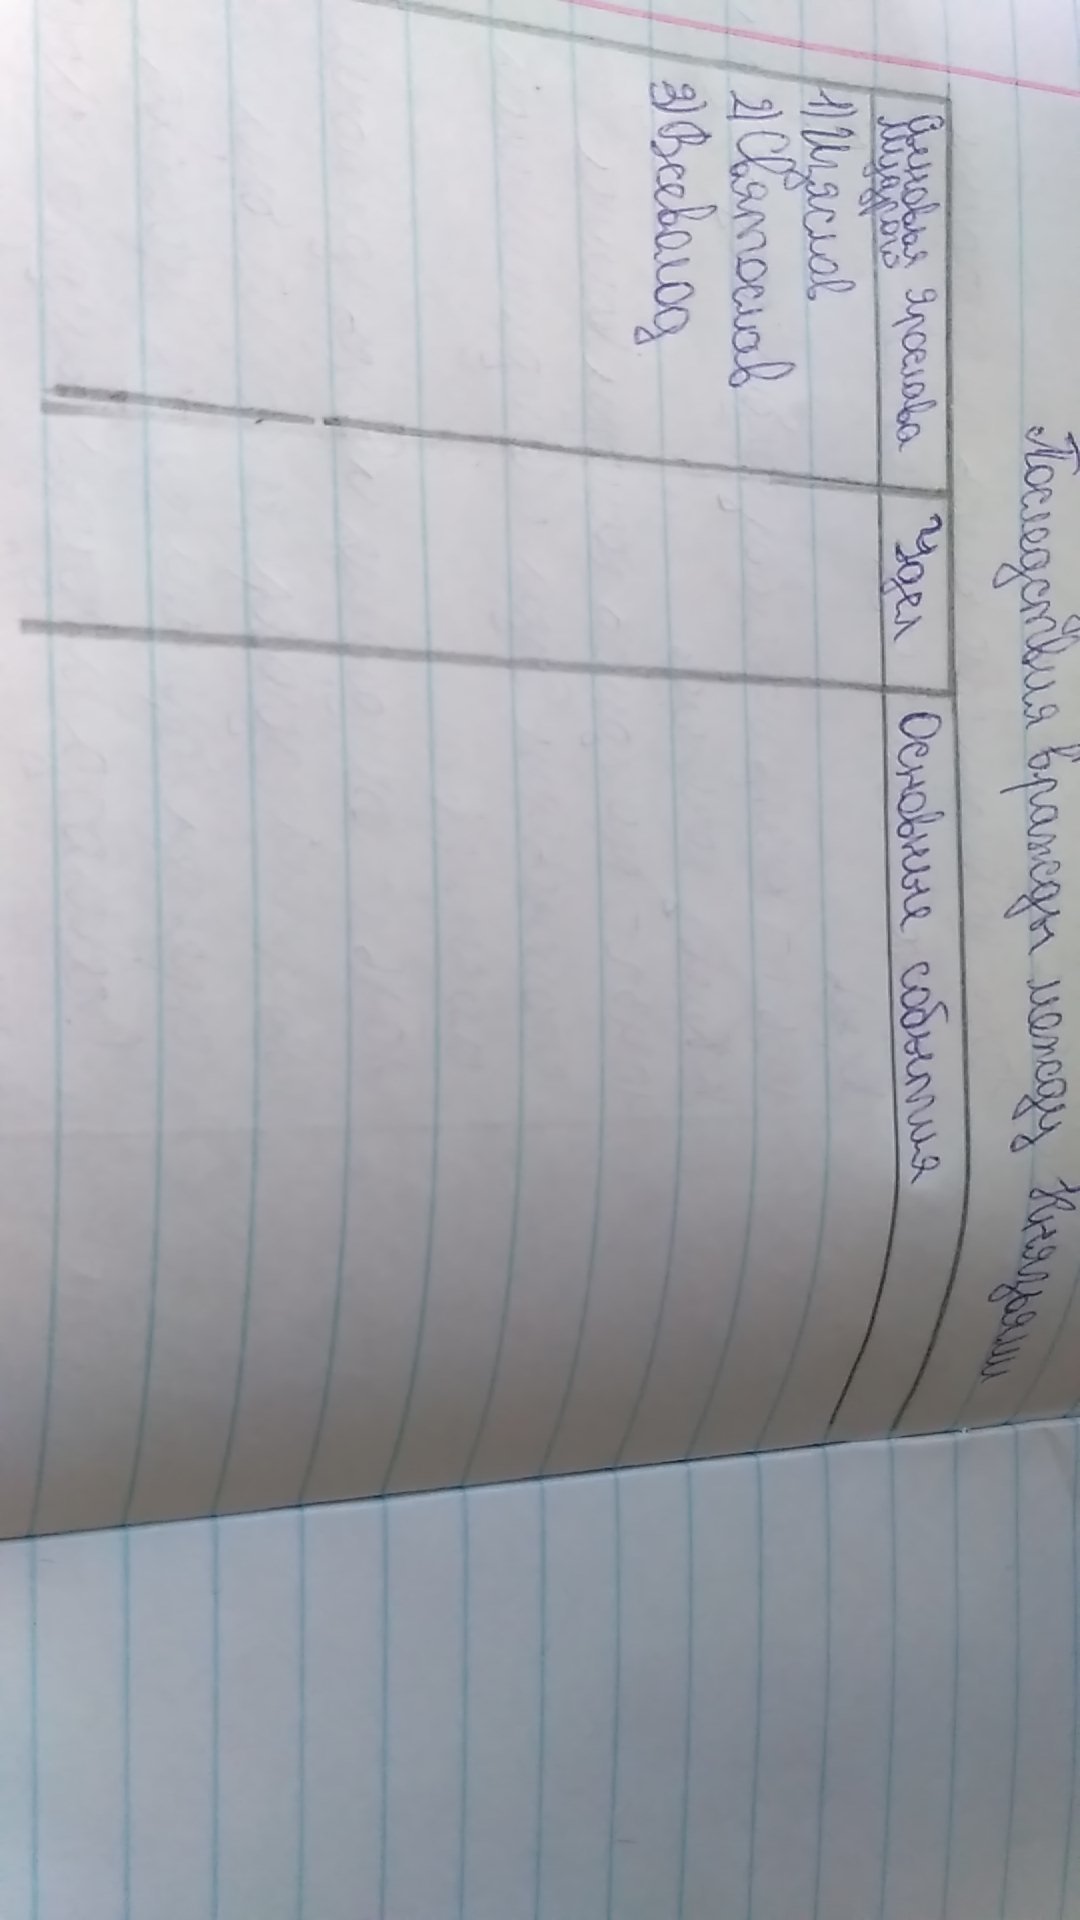 Последствия вражды между князьями
Сыновья Ярослава
Мудрого
Удел
Основные события
1) Изяслав
2) Святослав
3) Всеволод